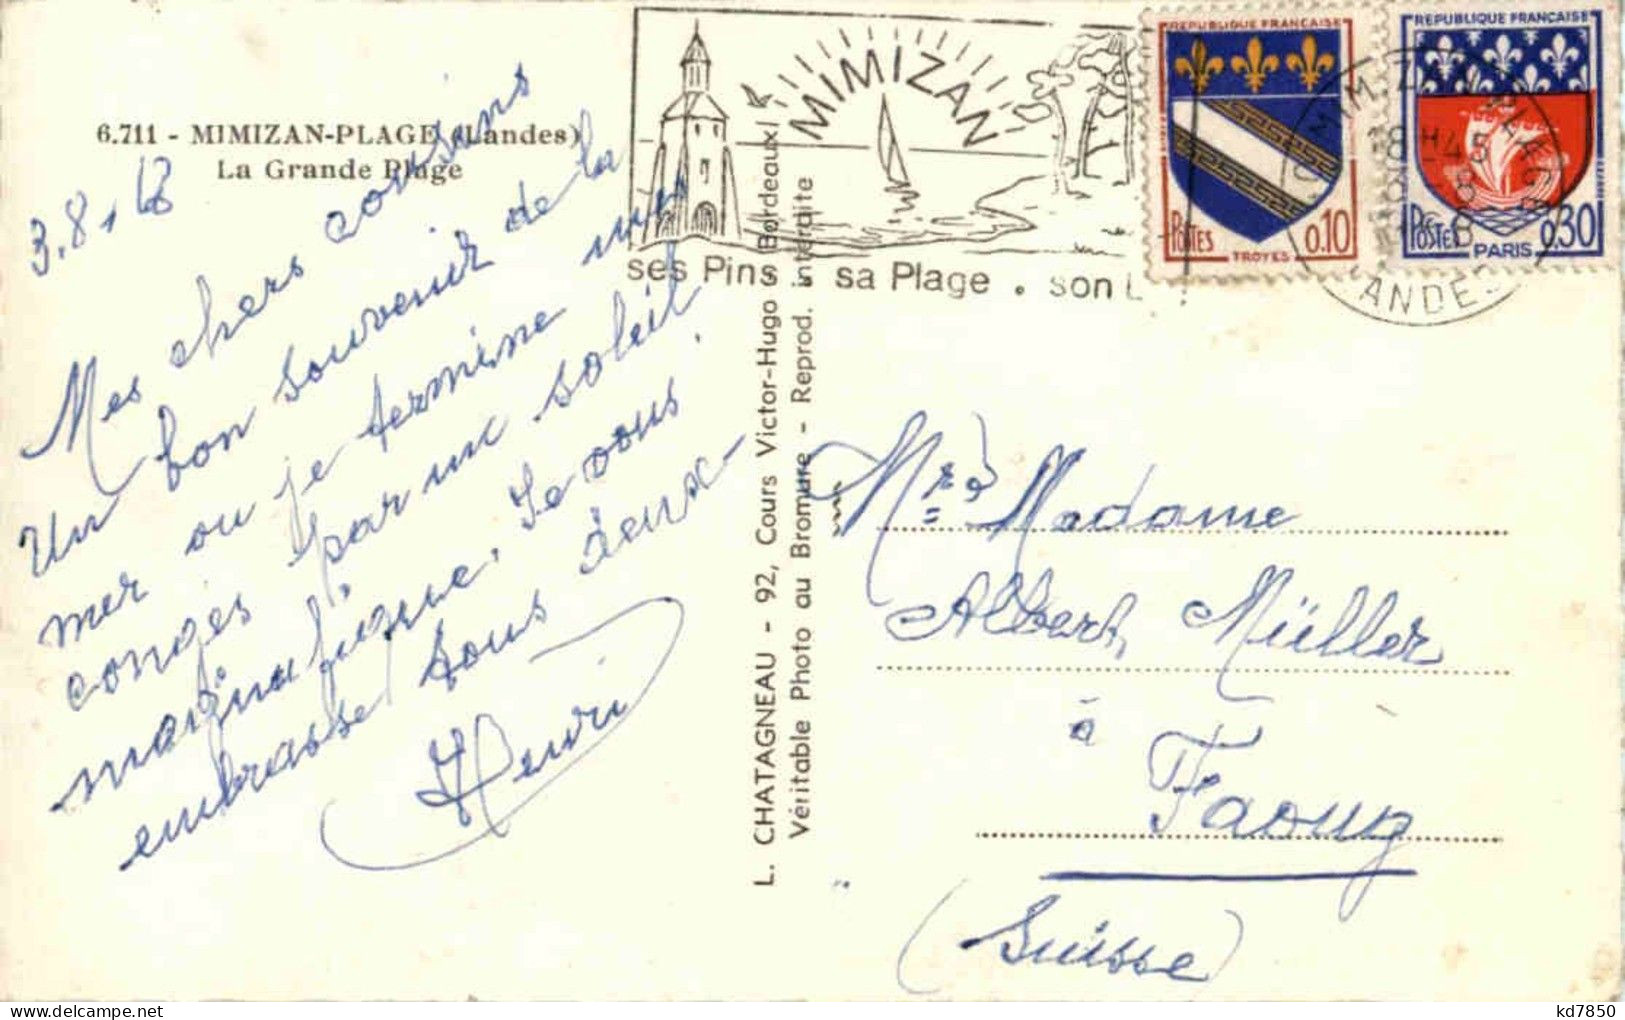 6.711 - MIMIZAN-PLAGE (Landes)
La Grande Plage
3.8.68
Mes chers cousins
Un bon souvenir de la
mer ou je termine mes
congés par un soleil
magnifique. Je vous
embrasse tous deux
Henri
L. CHATAGNEAU - 92, Cours Victor-Hugo (Bordeaux)
Véritable Photo au Bromure - Reprod. interdite
MIMIZAN
ses Pins sa Plage . son L
REPUBLIQUE FRANÇAISE
POSTES 0.10
TROYES
REPUBLIQUE FRANÇAISE
POSTES 0,30
PARIS
MIMIZAN PLAGE
18 H45
LANDES
Mr & Madame
Albert Müller
à
Faoug
(Suisse)
kd7850